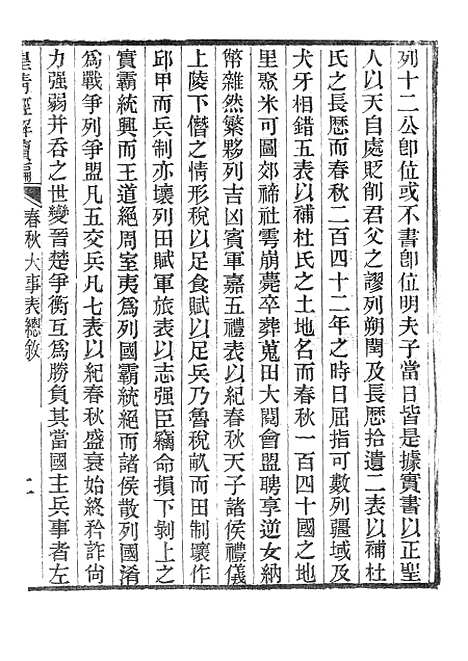 列十二公卽位或不書卽位明夫子當日皆是據實書以正聖
人以天自處貶削君父之謬列朔閏及長厯拾遺二表以補杜
氏之長厯而春秋二百四十二年之時日屈指可數列疆域及
犬牙相錯五表以補杜氏之土地名而春秋一百四十國之地
里聚米可圖郊禘社雩崩薨卒葬蒐田大閱會盟聘享逆女納
幣雜然繁夥列吉凶賓軍嘉五禮表以紀春秋天子諸侯禮儀
上陵下僭之情形稅以足食賦以足兵乃魯稅畝而田制壞作
邱甲而兵制亦壞列田賦軍旅表以志强臣竊命損下剝上之
實霸統興而王道絕周室夷爲列國霸統絕而諸侯散列國淆
爲戰爭列爭盟凡五交兵凡七表以紀春秋盛衰始終矜詐尙
力强弱并吞之世變晉楚爭衡互爲勝負其當國主兵事者左
皇淸經解續編
春秋大事表總敘
二